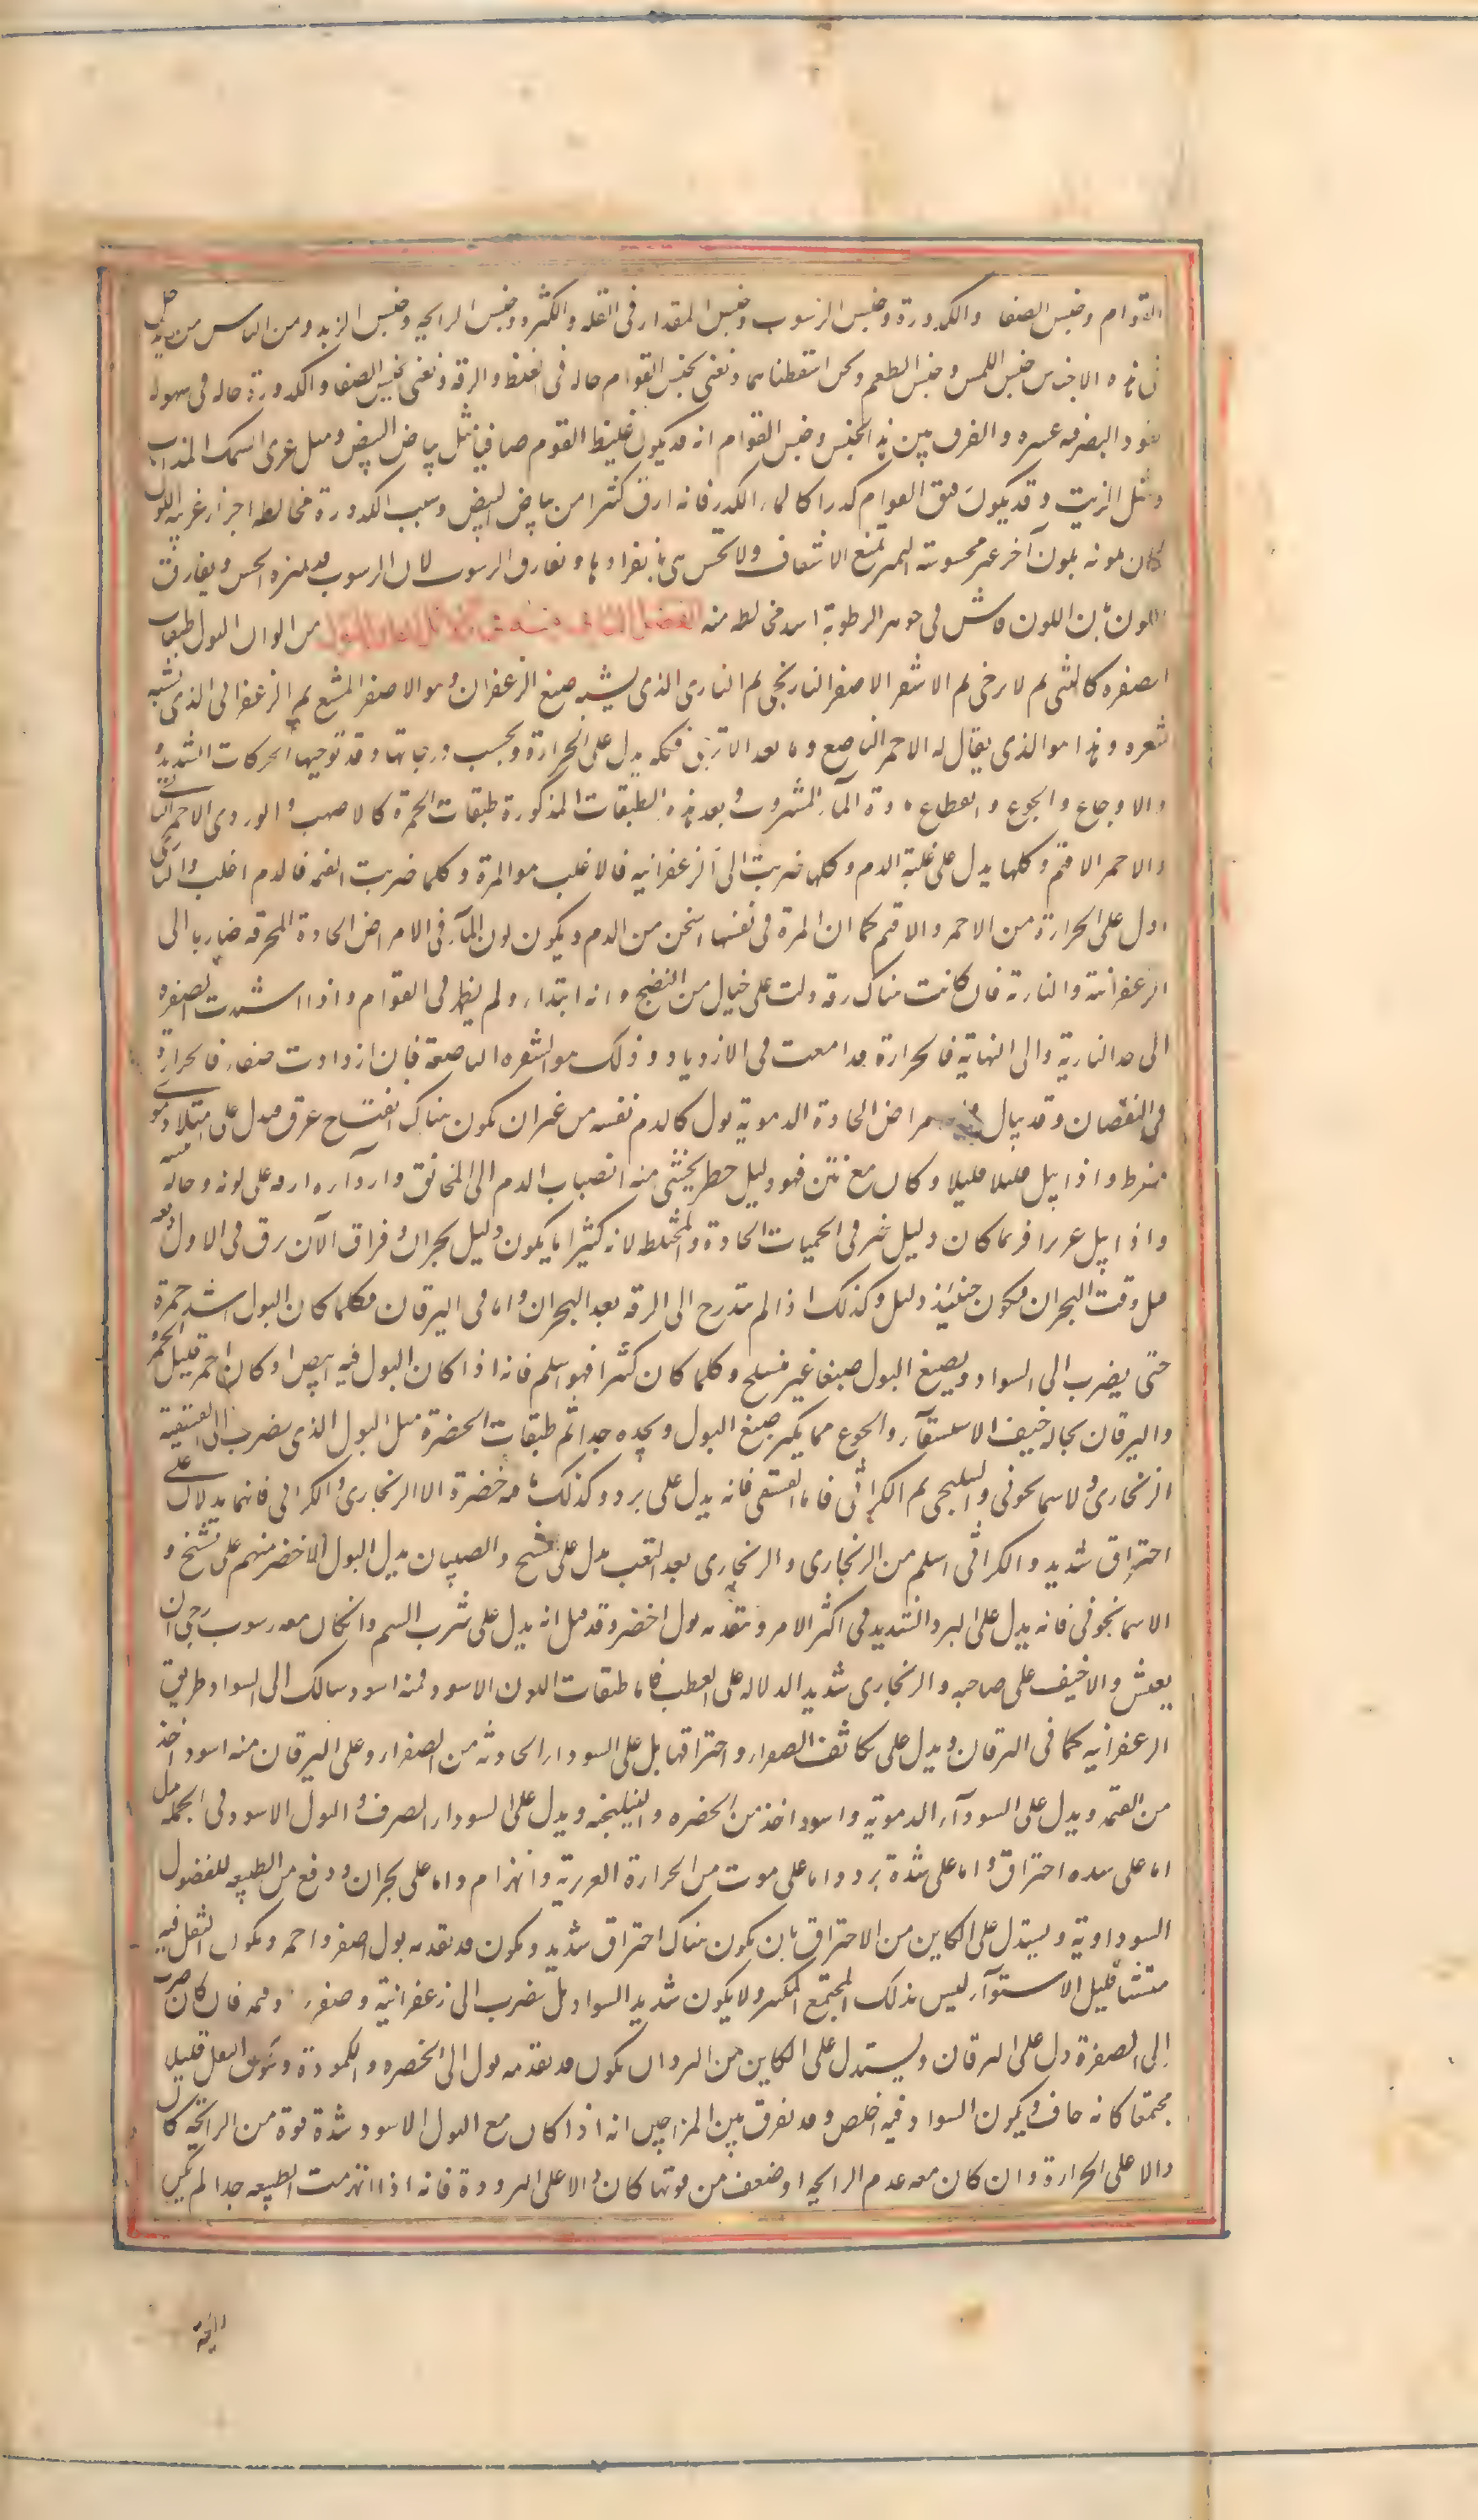 القوام وجنس الصفا والكدورة وجنس الرسوب وجنس المقدار فى القله والكثره وجنس الرايحه وجنس الزبد ومن الناس من يدخل
فى هذه الاجناس جنس اللمس وجنس الطعم ونحن اسقطناهما ونعنى بجنس القوام حاله فى الغلظ والرقه ونعنى بجنس الصفا والكدورة حاله فى سهوله
نفود البصر فيه عسره والفرق بين هذا الجنس وجنس القوام انه قد يكون غليظ القوم صافيا مثل بياض البيض ومثل غرى السمك المذاب
ومثل الزيت وقد يكون رقيق القوام كدرا كالماء الكدر فانه ارق كثرا من بياض البيض وسبب الكدورة مخالطه اجزاء غريبه اللون
ملونه بلون آخر غير محسوسة التميز تمنع الاشفاف ولا تحس هى بانفرادها وتفارق الرسوب لان الرسوب قد يميزه الحس ويفارق
اللون بان اللون فاش فى جوهر الرطوبة اشد مخالطه منه الفصل الثانى فى دلائل الوان البول من الوان البول طبقات
الصفره كالتبنى ثم الاترجى ثم الاشقر الاصفر النارنجى ثم النارى الذى يشبه صبغ الزعفران وهو الاصفر المشبع ثم الزعفرانى الذى يشبه
شعره وهذا هو الذى يقال له الاحمر الناصع وما بعد الاترجى فكله يدل على الحرارة وبحسب درجاتها وقد توجبها الحركات الشديدة
والاوجاع والجوع وانقطاع مادة المآء المشروب وبعد هذه الطبقات المذكورة طبقات الحمرة كالاصهب والوردى الاحمر القانى
والاحمر الاقتم وكلها يدل على غلبة الدم وكلها ضربت الى الزعفرانيه فالاغلب هو المرة وكلما ضربت القتمه فالدم اغلب والنارى
ادل على الحرارة من الاحمر والاقتم كما ان المرة فى نفسها اسخن من الدم ويكون لون المآء فى الامراض الحادة المحرقه ضاربا الى
الزعفرانية والنارية فان كانت هناك رقه دلت على خيال من النضج وانه ابتداء ولم يظهر فى القوام واذا اشتدت الصفره
الى حد النارية والى النهاية فالحرارة قد امعنت فى الازدياد وذلك هو الشقره الناصعة فان ازدادت صفاء فالحرارة
فى النقصان وقد يبال فى الامراض الحادة الدموية بول كالدم نفسه من غير ان يكون هناك انفتاح عرق فيدل على امتلاء دموى
مفرط واذا بيل قليلا قليلا وكان مع نتن فهو دليل خطر يخشى منه انصباب الدم الى المخانق واردآءه ارقه على لونه وحاله
واذا بيل غزيرا فربما كان دليل خير فى الحميات الحادة والمختلطه لانه كثيرا ما يكون دليل بحران وفراق الا ان يرق فى الاول دفعه
قبل وقت البحران فيكون حينئذ دليل وكذلك اذا لم يتدرج الى الرقه بعد البحران واما فى اليرقان فكلما كان البول اشد حمرة
حتى يضرب الى السواد ويصبغ البول صبغا غير منسلخ وكلما كان كثيرا فهو اسلم فانه اذا كان البول فيه ابيض او كان احمر قليل الحمرة
واليرقان بحاله خيف الاستسقآء والجوع مما يكثر صبغ البول ويحده جدا ثم طبقات الخضرة مثل البول الذى يضرب الى الفستقية
الزنجارى والاسمانجونى والنيلنجى ثم الكراثى فاما الفستقى فانه يدل على برد وكذلك ما فيه خضرة الا الزنجارى والكراثى فانهما يدلان على
احتراق شديد والكراثى اسلم من الزنجارى والزنجارى بعد التعب يدل على تشنج والصبيان يدل البول الاخضر منهم على تشنج و
الاسمانجونى فانه يدل على البرد الشديد فى اكثر الامر ويتقدمه بول اخضر وقد قيل انه يدل على شرب السم وان كان معه رسوب رجى ان
يعيش والا خيف على صاحبه والزنجارى شديد الدلاله على العطب فاما طبقات اللون الاسود فمنه اسود سالك الى السواد طريق
الزعفرانيه كما فى اليرقان ويدل على تكاثف الصفراء واحتراقها بل على السوداء الحادثه من الصفراء وعلى اليرقان منه اسود اخذ
من القتمه ويدل على السودآء الدموية واسود اخذ من الخضره والنيلنجيه ويدل على السوداء الصرف والبول الاسود فى الجمله يدل
اما على شده احتراق واما على شدة برد واما على موت من الحرارة الغريزية وانهزام واما على بحران ودفع من الطبيعه للفضول
السوداوية ويستدل على الكاين من الاحتراق بان يكون هناك احتراق شديد ويكون قد تقدمه بول اصفر واحمر ويكون الثفل فيه
متشتتا قليل الاستوآء ليس بذلك المجتمع المكتنز ولا يكون شديد السواد بل يضرب الى زعفرانية وصفره وقتمه فان كان يضرب
الى الصفرة دل على اليرقان ويستدل على الكاين من البرد ان يكون قد تقدمه بول الى الخضره والكمودة ويكون الثفل قليلا
مجتمعا كانه جاف ويكون السواد فيه اخلص وقد يفرق بين المزاجين انه اذا كان مع البول الاسود شدة قوة من الرائحة كان
دالا على الحرارة وان كان معه عدم الرايحه او ضعف من قوتها كان دالا على البرودة فانه اذا انهزمت الطبيعه جدا لم يكن
رايحة